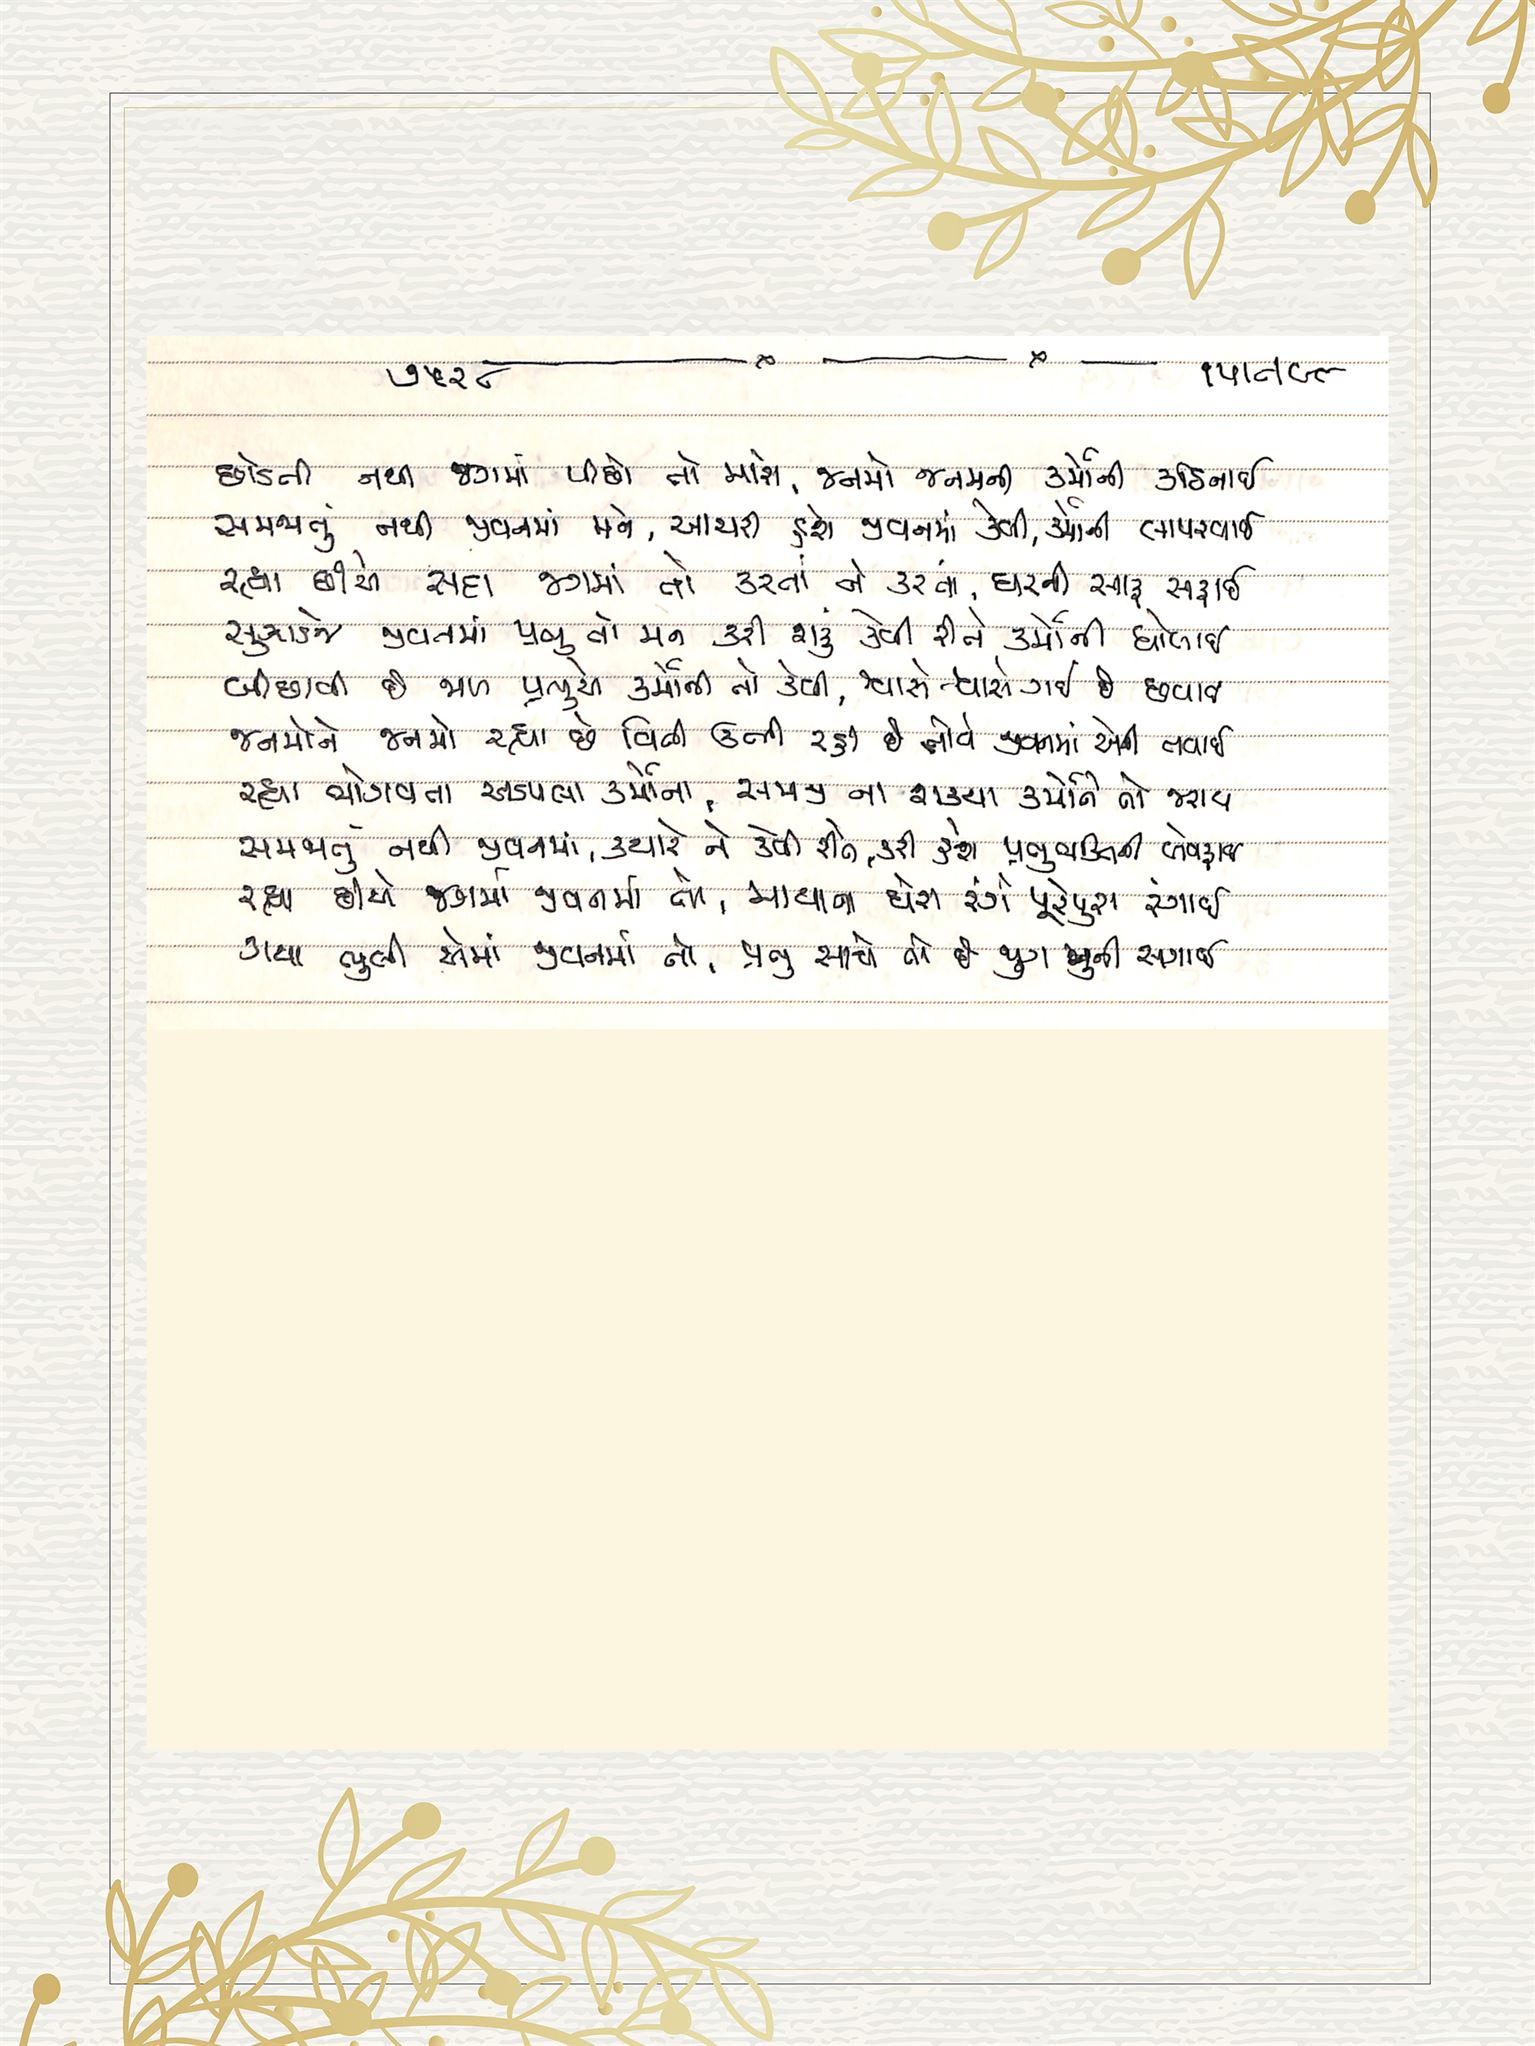 ૭૫૨૮ ૧૫।૧।૯૯
છોડતી નથી જગમાં પીછો તો મારો, જનમો જનમની કર્મોની કઠિનાઈ
સમજાતું નથી જીવનમાં મને, આચરી હશે જીવનમાં કેવી, કર્મોની લાપરવાઈ
રહ્યા છીએ સદા જગમાં તો કરતાં ને કરતાં, ઘરની સાફ સફાઈ
સુઝાડજે જીવનમાં પ્રભુ તો મને કરી શકું કેવી રીતે કર્મોની ધોલાઈ
બીછાવી છે જાળ પ્રભુએ કર્મોની તો કેવી, શ્વાસે શ્વાસે ગઈ છે છવાઈ
જનમોને જનમો રહ્યા છે વિતી ઉન્નતી રહી છે જીવનમાં એની
રહ્યા ભોગવતા સપાટા કર્મોના, સમજી ના શક્યા કર્મોને તો જરાય
સમજાતું નથી જીવનમાં, ક્યારે ને કેવી રીતે, કરી હશે પ્રભુભક્તિની બેવફાઈ
રહ્યા છીએ જગમાં જીવનમાં તો, માયાના ઘેરા રંગે પૂરેપુરા રંગાઈ
ગયા ભુલી એમાં જીવનમાં તો, પ્રભુ સાથે તો છે યુગ જુની સગાઈ